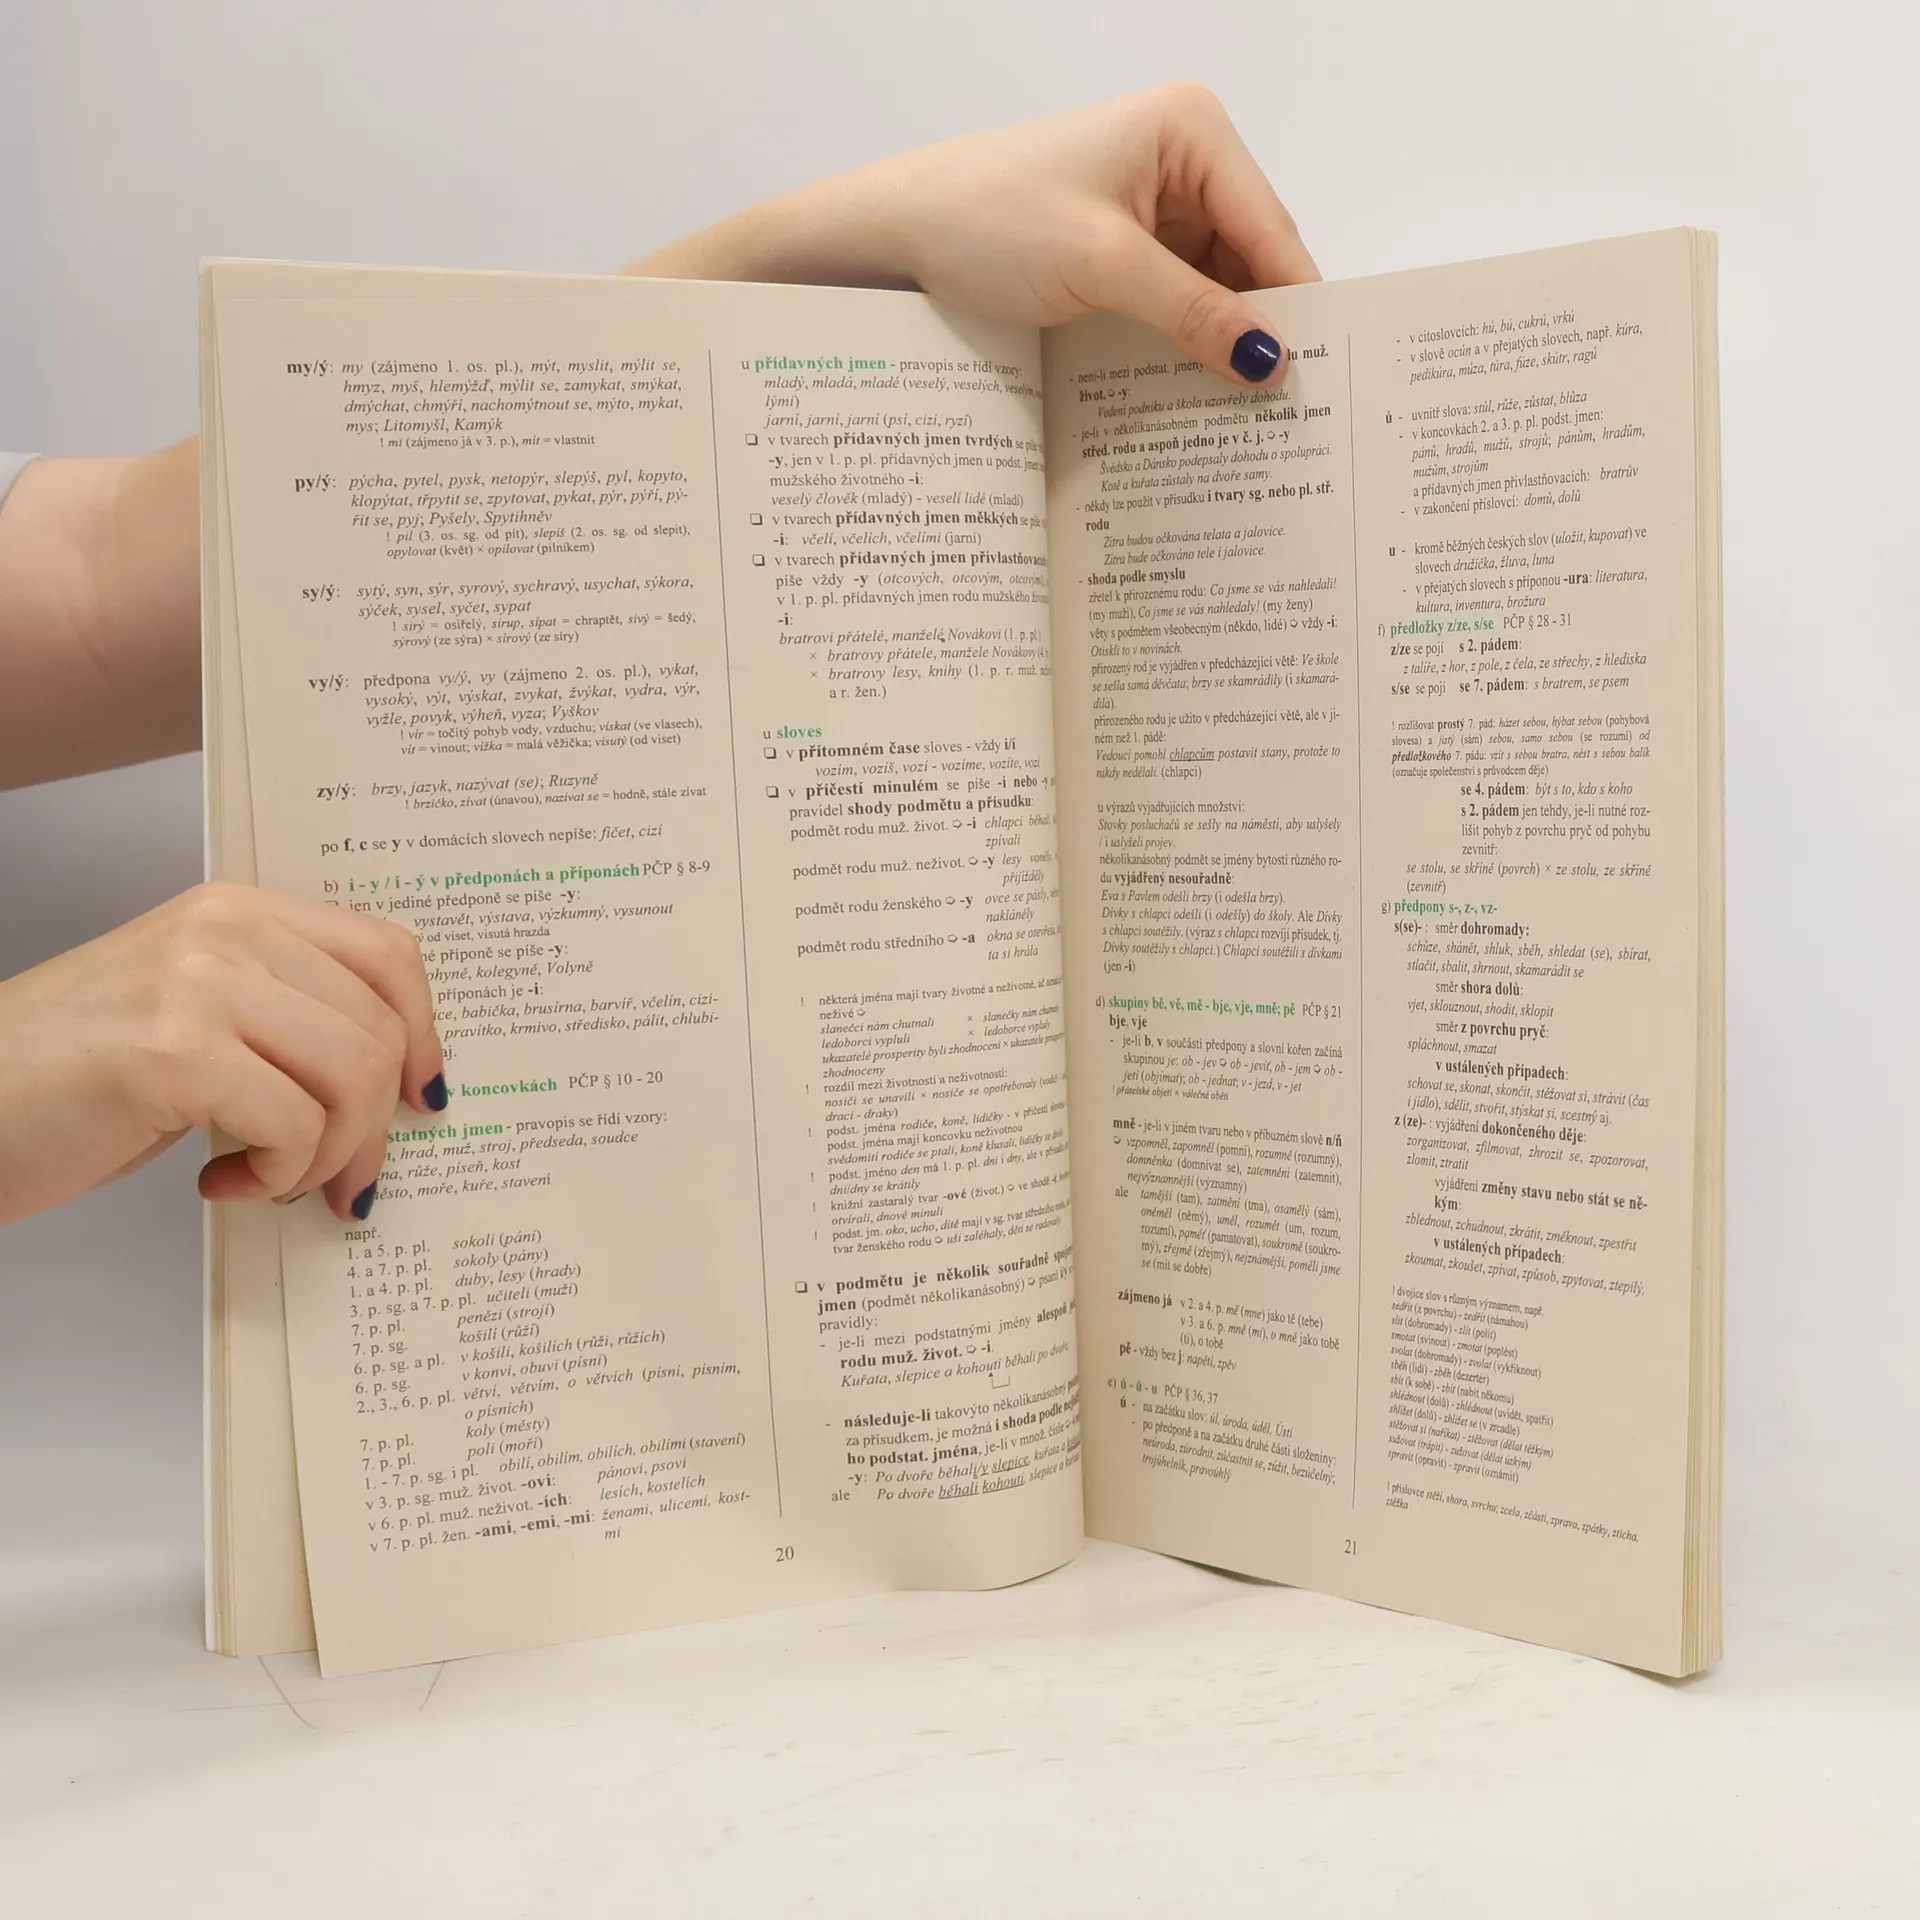 my/ý: my (zájmeno 1. os. pl.), mýt, myslit, mýlit se,
hmyz, myš, hlemýžď, mýlit se, zamykat, smýkat,
dmýchat, chmýří, nachomýtnout se, mýto, mykat,
mys; Litomyšl, Kamýk
! mi (zájmeno já v 3. p.), mít = vlastnit
py/ý: pýcha, pytel, pysk, netopýr, slepýš, pyl, kopyto,
klopýtat, třpytit se, zpytovat, pykat, pýr, pýří, pý-
řit se, pyj; Pyšely, Spytihněv
! pil (3. os. sg. od pít), slepíš (2. os. sg. od slepit),
opylovat (květ) × opilovat (pilníkem)
sy/ý: sytý, syn, sýr, syrový, sychravý, usychat, sýkora,
sýček, sysel, syčet, sypat
! sirý = osiřelý, sirup, sípat = chraptět, sivý = šedý,
sýrový (ze sýra) × sírový (ze síry)
vy/ý: předpona vy/ý, vy (zájmeno 2. os. pl.), vykat,
vysoký, výt, výskat, zvykat, žvýkat, vydra, výr,
vyžle, povyk, výheň, vyza; Vyškov
! vír = točitý pohyb vody, vzduchu; vískat (ve vlasech),
vít = vinout; vížka = malá věžička; visutý (od viset)
zy/ý: brzy, jazyk, nazývat (se); Ruzyně
! brzičko, zívat (únavou), nazívat se = hodně, stále zívat
po f, c se y v domácích slovech nepíše: fičet, cizí
b) i - y / í - ý v předponách a příponách PČP § 8-9
jen v jediné předponě se píše -y:
vystavět, výstava, výzkumný, vysunout
od viset, visutá hrazda
příponě se píše -y:
kolegyně, Volyně
příponách je -i:
babička, brusírna, barvíř, včelín, cizi-
pravítko, krmivo, středisko, pálit, chlubi-
v koncovkách PČP § 10 - 20
jmen - pravopis se řídí vzory:
hrad, muž, stroj, předseda, soudce
růže, píseň, kost
moře, kuře, stavení
např.
1. a 5. p. pl. sokoli (páni)
4. a 7. p. pl. sokoly (pány)
1. a 4. p. pl. duby, lesy (hrady)
3. p. sg. a 7. p. pl. učiteli (muži)
7. p. pl. penězi (stroji)
7. p. sg. košilí (růží)
6. p. sg. a pl. v košili, košilích (růži, růžích)
6. p. sg. v konvi, obuvi (písni)
2., 3., 6. p. pl. větví, větvím, o větvích (písní, písním,
o písních)
7. p. pl. koly (městy)
7. p. pl. poli (moři)
1. - 7. p. sg. i pl. obilí, obilím, obilích, obilími (stavení)
v 3. p. sg. muž. život. -ovi: pánovi, psovi
v 6. p. pl. muž. neživot. -ích: lesích, kostelích
v 7. p. pl. žen. -ami, -emi, -mi: ženami, ulicemi, kost-
mi
u přídavných jmen - pravopis se řídí vzory:
mladý, mladá, mladé (veselý, veselých,
lými)
jarní, jarní, jarní (psí, cizí, ryzí)
❏ v tvarech přídavných jmen tvrdých se píše
-y, jen v 1. p. pl. přídavných jmen u podst. jmen
mužského životného -i:
veselý člověk (mladý) - veselí lidé (mladí)
❏ v tvarech přídavných jmen měkkých se píše
-i: včelí, včelích, včelími (jarní)
❏ v tvarech přídavných jmen
píše vždy -y (otcových, otcovým,
v 1. p. pl. přídavných jmen rodu mužského
-i:
bratrovi přátelé, manželé Novákovi (1. p. pl.)
× bratrovy přátele, manžele Novákovy
× bratrovy lesy, knihy (1. p. r. muž.
a r. žen.)
u sloves
❏ v přítomném čase sloves - vždy i/í
vozím, vozíš, vozí - vozíme, vozíte, vozí
❏ v příčestí minulém se píše -i nebo -y
pravidel shody podmětu a přísudku:
podmět rodu muž. život. ➪ -i chlapci běhali,
zpívali
podmět rodu muž. neživot. ➪ -y lesy
přijížděly
podmět rodu ženského ➪ -y ovce se pásly,
nakláněly
podmět rodu středního ➪ -a okna se
ta si hrála
! některá jména mají tvary životné a neživotné, ač
neživé ➪
slanečci nám chutnali × slanečky nám chutnaly
ledoborci vypluli × ledoborce vypluly
ukazatelé prosperity byli zhodnoceni × ukazatele
zhodnoceny
! rozdíl mezi životností a neživotností:
nosiči se unavili × nosiče se opotřebovaly
draci - draky)
! podst. jména rodiče, koně, lidičky - v příčestí
podst. jména mají koncovku neživotnou
svědomití rodiče se ptali, koně klusali, lidičky se
! podst. jméno den má 1. p. pl. dni i dny, ale v
dni/dny se krátily
! knižní zastaralý tvar -ové (život.) ➪ ve shodě -i
otvírali, dnové minuli
! podst. jm. oko, ucho, dítě mají v sg. tvar středního
tvar ženského rodu ➪ uši zaléhaly, děti se radovaly
❏ v podmětu je několik souřadně
jmen (podmět několikanásobný) ➪ psaní
pravidly:
- je-li mezi podstatnými jmény alespoň
rodu muž. život. ➪ -i.
Kuřata, slepice a kohouti běhali po dvoře.
- následuje-li takovýto několikanásobný
za přísudkem, je možná i shoda podle
ho podstat. jména, je-li v množ. čísle
-y: Po dvoře běhali/y slepice, kuřata a
ale Po dvoře běhali kohouti, slepice a
20
- není-li mezi podstat. jmény lu muž.
život. ➪ -y:
Vedení podniku a škola uzavřely dohodu.
- je-li v několikanásobném podmětu několik jmen
střed. rodu a aspoň jedno je v č. j. ➪ -y
Švédsko a Dánsko podepsaly dohodu o spolupráci.
Kotě a kuřata zůstaly na dvoře samy.
- někdy lze použít v přísudku i tvary sg. nebo pl. stř.
rodu
Zítra budou očkována telata a jalovice.
Zítra bude očkováno tele i jalovice.
- shoda podle smyslu
zřetel k přirozenému rodu: Co jsme se vás nahledali!
(my muži), Co jsme se vás nahledaly! (my ženy)
věty s podmětem všeobecným (někdo, lidé) ➪ vždy -i:
Otiskli to v novinách.
přirozený rod je vyjádřen v předcházející větě: Ve škole
se sešla samá děvčata; brzy se skamrádily (i skamará-
dila).
přirozeného rodu je užito v předcházející větě, ale v ji-
ném než 1. pádě:
Vedoucí pomohl chlapcům postavit stany, protože to
nikdy nedělali. (chlapci)
u výrazů vyjadřujících množství:
Stovky posluchačů se sešly na náměstí, aby uslyšely
/ i uslyšeli projev.
několikanásobný podmět se jmény bytostí různého ro-
du vyjádřený nesouřadně:
Eva s Pavlem odešli brzy (i odešla brzy).
Dívky s chlapci odešli (i odešly) do školy. Ale Dívky
s chlapci soutěžily. (výraz s chlapci rozvíjí přísudek, tj.
Dívky soutěžily s chlapci.) Chlapci soutěžili s dívkami
(jen -i)
d) skupiny bě, vě, mě - bje, vje, mně; pě PČP § 21
bje, vje
- je-li b, v součástí předpony a slovní kořen začíná
skupinou je: ob - jev ➪ ob - jevit, ob - jem ➪ ob -
jetí (objímat); ob - jednat; v - jezd, v - jet
! přátelské objetí × válečné oběti
mně - je-li v jiném tvaru nebo v příbuzném slově n/ň
➪ vzpomněl, zapomněl (pomni), rozumně (rozumný),
domněnka (domnívat se), zatemnění (zatemnit),
nejvýznamnější (významný)
ale tamější (tam), zatmění (tma), osamělý (sám),
oněměl (němý), uměl, rozumět (um, rozum,
rozumí), paměť (pamatovat), soukromě (soukro-
mý), zřejmě (zřejmý), nejznámější, poměli jsme
se (mít se dobře)
zájmeno já v 2. a 4. p. mě (mne) jako tě (tebe)
v 3. a 6. p. mně (mi), o mně jako tobě
(ti), o tobě
pě - vždy bez j: napětí, zpěv
e) ú - ů - u PČP § 36, 37
ú - na začátku slov: úl, úroda, úděl, Ústí
- po předponě a na začátku druhé části složeniny:
neúroda, zúrodnit, zúčastnit se, zúžit, bezúčelný,
trojúhelník, pravoúhlý
- v citoslovcích: hú, bú, cukrú, vrkú
- v slově ocún a v přejatých slovech, např. kúra,
pedikúra, múza, túra, fúze, skútr, ragú
ů - uvnitř slova: stůl, růže, zůstat, blůza
- v koncovkách 2. a 3. p. pl. podst. jmen:
pánů, hradů, mužů, strojů; pánům, hradům,
mužům, strojům
a přídavných jmen přivlastňovacích: bratrův
- v zakončení příslovcí: domů, dolů
u - kromě běžných českých slov (uložit, kupovat) ve
slovech družička, žluva, luna
- v přejatých slovech s příponou -ura: literatura,
kultura, inventura, brožura
f) předložky z/ze, s/se PČP § 28 - 31
z/ze se pojí s 2. pádem:
z talíře, z hor, z pole, z čela, ze střechy, z hlediska
s/se se pojí se 7. pádem: s bratrem, se psem
! rozlišovat prostý 7. pád: házet sebou, hýbat sebou (pohybová
slovesa) a jistý (sám) sebou, samo sebou (se rozumí) od
předložkového 7. pádu: vzít s sebou bratra, nést s sebou balík
(označuje společenství s průvodcem děje)
se 4. pádem: být s to, kdo s koho
s 2. pádem jen tehdy, je-li nutné roz-
lišit pohyb z povrchu pryč od pohybu
zevnitř:
se stolu, se skříně (povrch) × ze stolu, ze skříně
(zevnitř)
g) předpony s-, z-, vz-
s(se)- : směr dohromady:
schůze, shánět, shluk, sběh, shledat (se), sbírat,
stlačit, sbalit, shrnout, skamarádit se
směr shora dolů:
vjet, sklouznout, shodit, sklopit
směr z povrchu pryč:
spláchnout, smazat
v ustálených případech:
schovat se, skonat, skončit, stěžovat si, strávit (čas
i jídlo), sdělit, stvořit, stýskat si, scestný aj.
z (ze)- : vyjádření dokončeného děje:
zorganizovat, zfilmovat, zhrozit se, zpozorovat,
zlomit, ztratit
vyjádření změny stavu nebo stát se ně-
kým:
zblednout, zchudnout, zkrátit, změknout, zpestřit
v ustálených případech:
zkoumat, zkoušet, zpívat, způsob, zpytovat, ztepilý,
! dvojice slov s různým významem, např.
sedřít (z povrchu) - zedřít (námahou)
slít (dohromady) - zlít (polít)
smotat (svinout) - zmotat (poplést)
svolat (dohromady) - zvolat (vykřiknout)
sběh (lidí) - zběh (dezertér)
sbít (k sobě) - zbít (nabít někomu)
shlédnout (dolů) - zhlédnout (uvidět, spatřit)
shlížet (dolů) - zhlížet se (v zrcadle)
stěžovat si (naříkat) - ztěžovat (dělat těžkým)
sužovat (trápit) - zužovat (dělat úzkým)
spravit (opravit) - zpravit (oznámit)
! příslovce stěží, shora, svrchu, zcela, zčásti, zprava, zpátky, zticha,
ztěžka
21